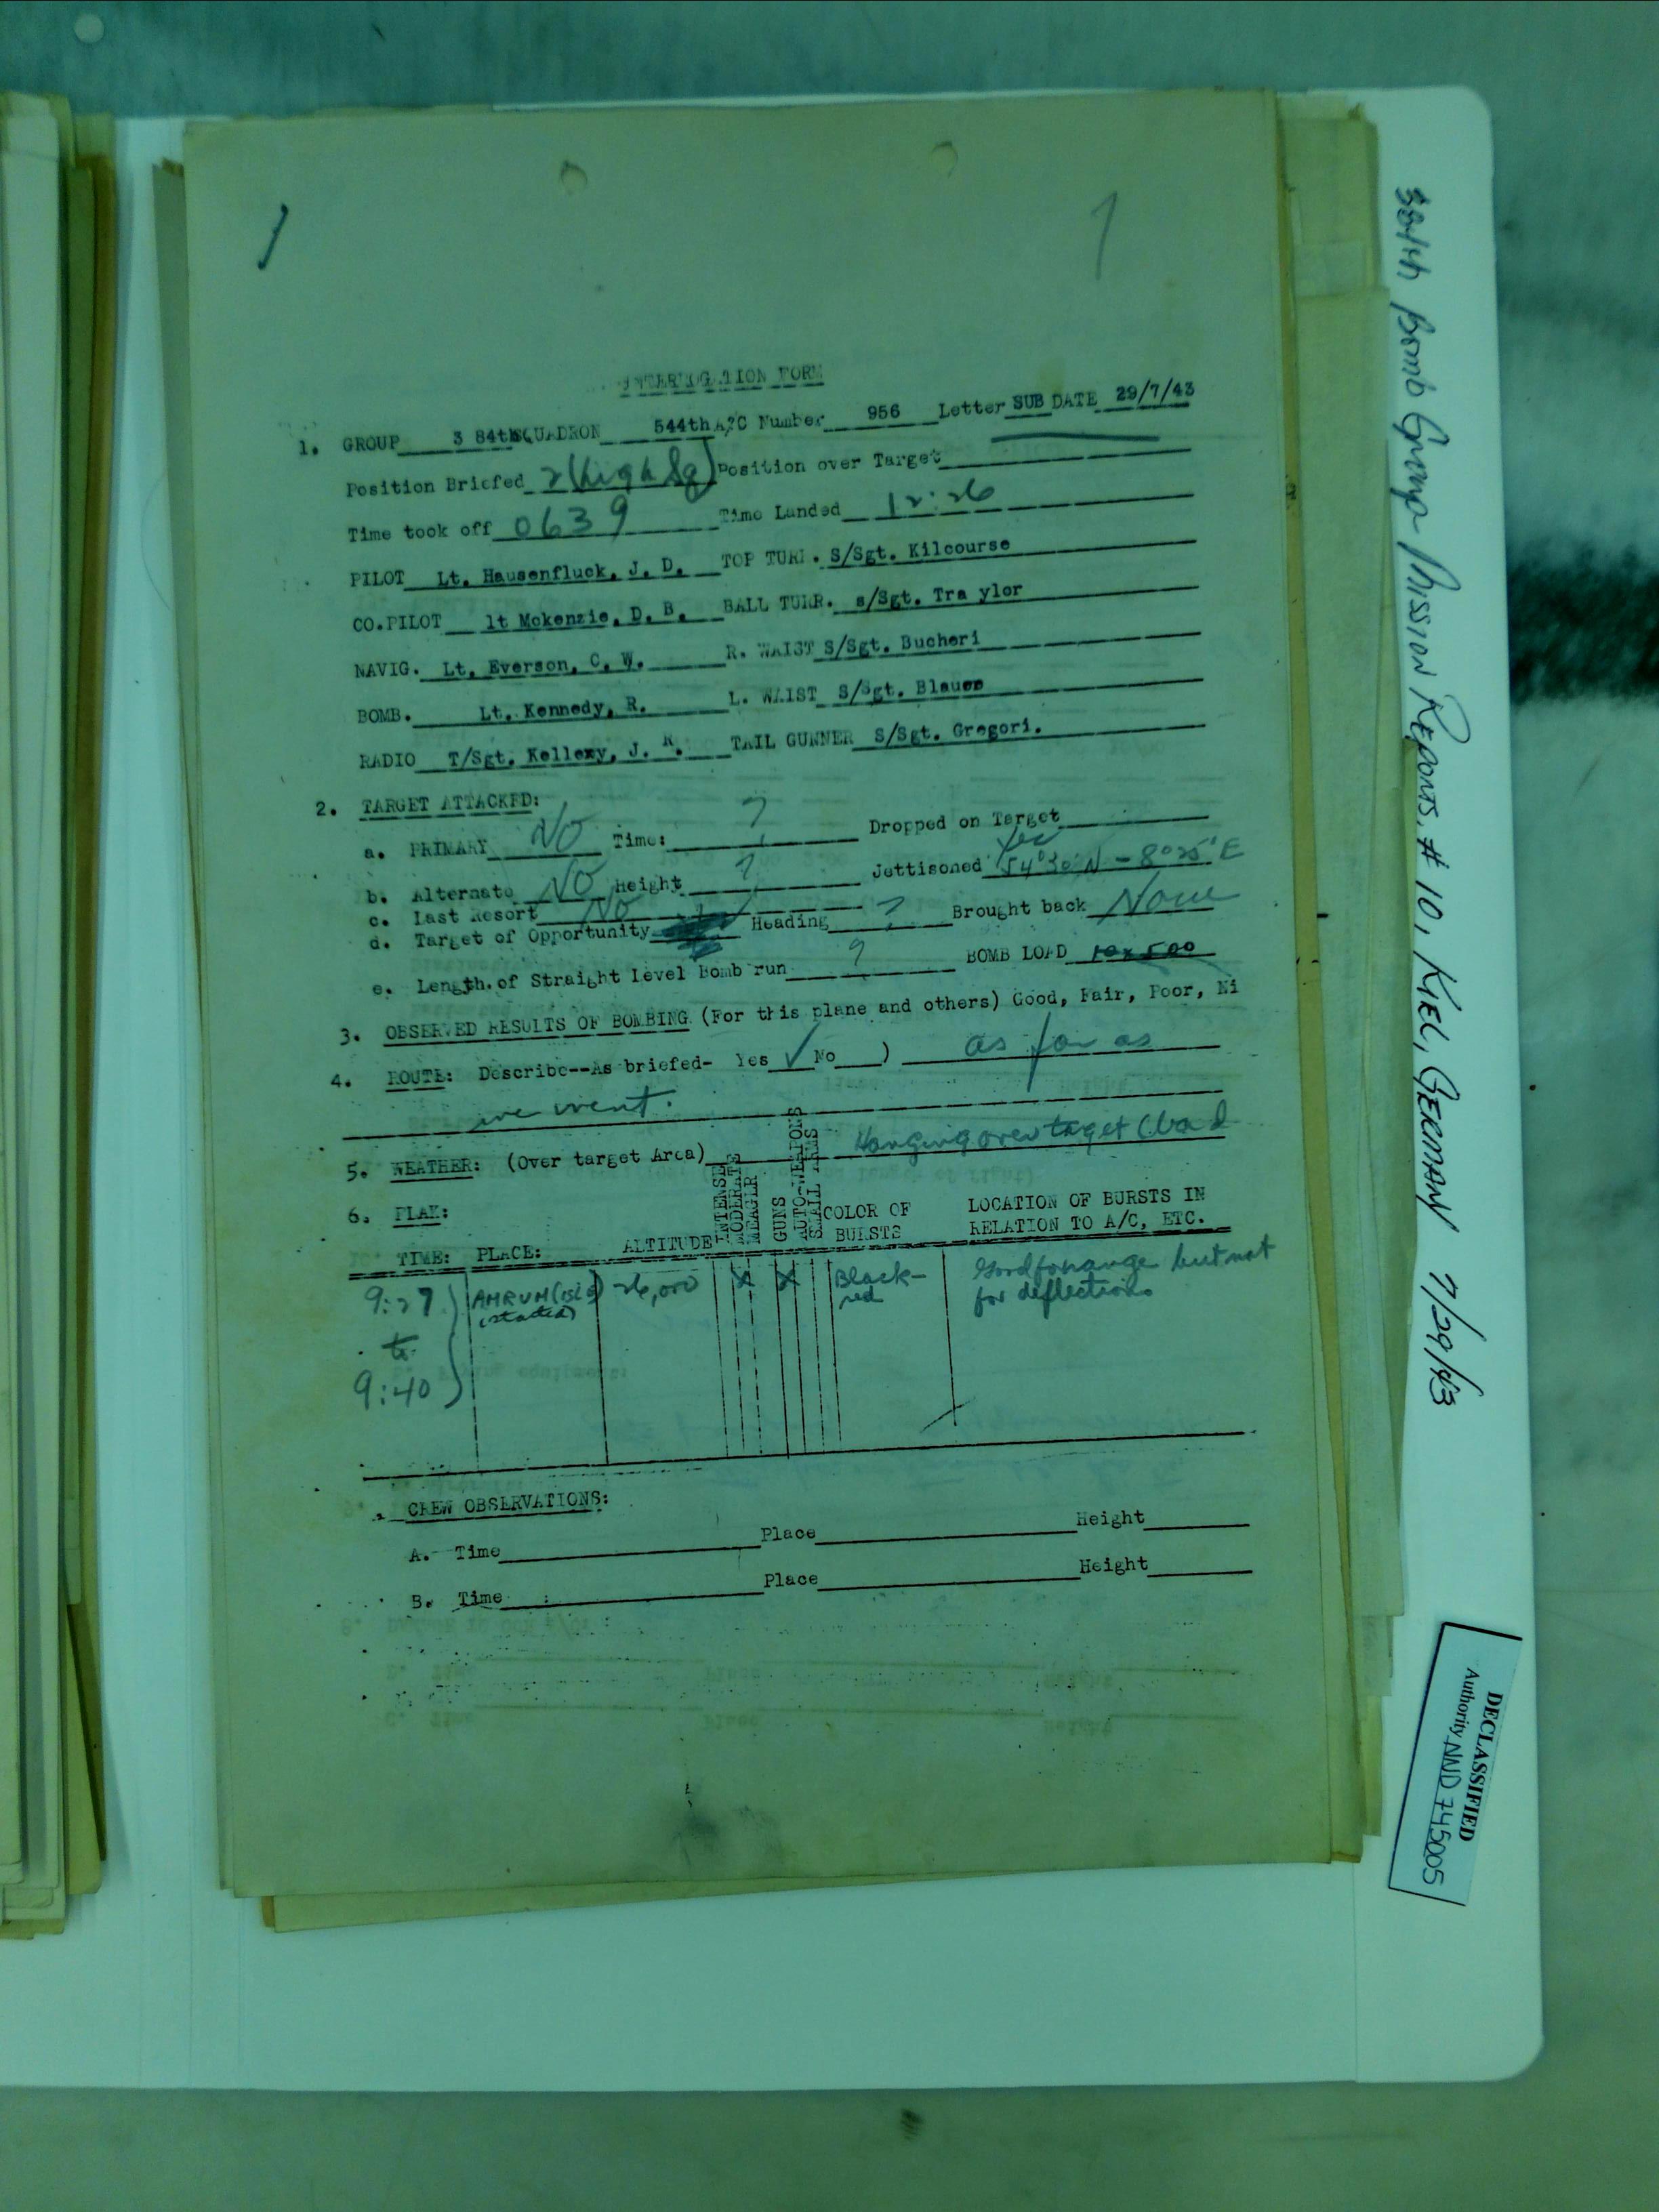 1
1
INTERROGATION FORM
1. GROUP 3 84th SQUADRON 544th A/C Number 956 Letter SUB DATE 29/7/43
Position Briefed 2 (high Sq) Position over Target
Time took off 0639 Time Landed 12:26
PILOT Lt. Hausenfluck, J. D. TOP TURR. S/Sgt. Kilcourse
CO.PILOT lt Mckenzie, D. B. BALL TURR. s/Sgt. Tra ylor
NAVIG. Lt. Everson, C. W. R. WAIST S/Sgt. Bucheri
BOMB. Lt. Kennedy, R. L. WAIST S/Sgt. Blauer
RADIO T/Sgt. Kellexy, J. R. TAIL GUNNER S/Sgt. Gregori.
2. TARGET ATTACKED:
a. PRIMARY NO Time: ? Dropped on Target
b. Alternate NO Height ? Jettisoned Yes 54°30'N - 8°25'E
c. Last Resort No
d. Target of Opportunity Heading ? Brought back None
e. Length of Straight Level Bomb run ? BOMB LOAD 10x500
3. OBSERVED RESULTS OF BOMBING (For this plane and others) Good, Fair, Poor, Ni
4. ROUTE: Describe--As briefed- Yes ✓ No ) as far as
we went.
5. WEATHER: (Over target Area) Hanging over target (bad
6. FLAK:
TIME: PLACE: ALTITUDE INTENSE MODERATE MEAGER GUNS AUTO-WEAPONS SMALL ARMS COLOR OF BURSTS LOCATION OF BURSTS IN RELATION TO A/C, ETC.
9:27 to 9:40 AMRUM (isld) (started) 26,000 X X Black-red Good for range but not for deflection.
CREW OBSERVATIONS:
A. Time Place Height
B. Time : Place Height
384th Bomb Group Mission Reports, # 10, KIEL, GERMAN 7/29/43
DECLASSIFIED
Authority NND 745005